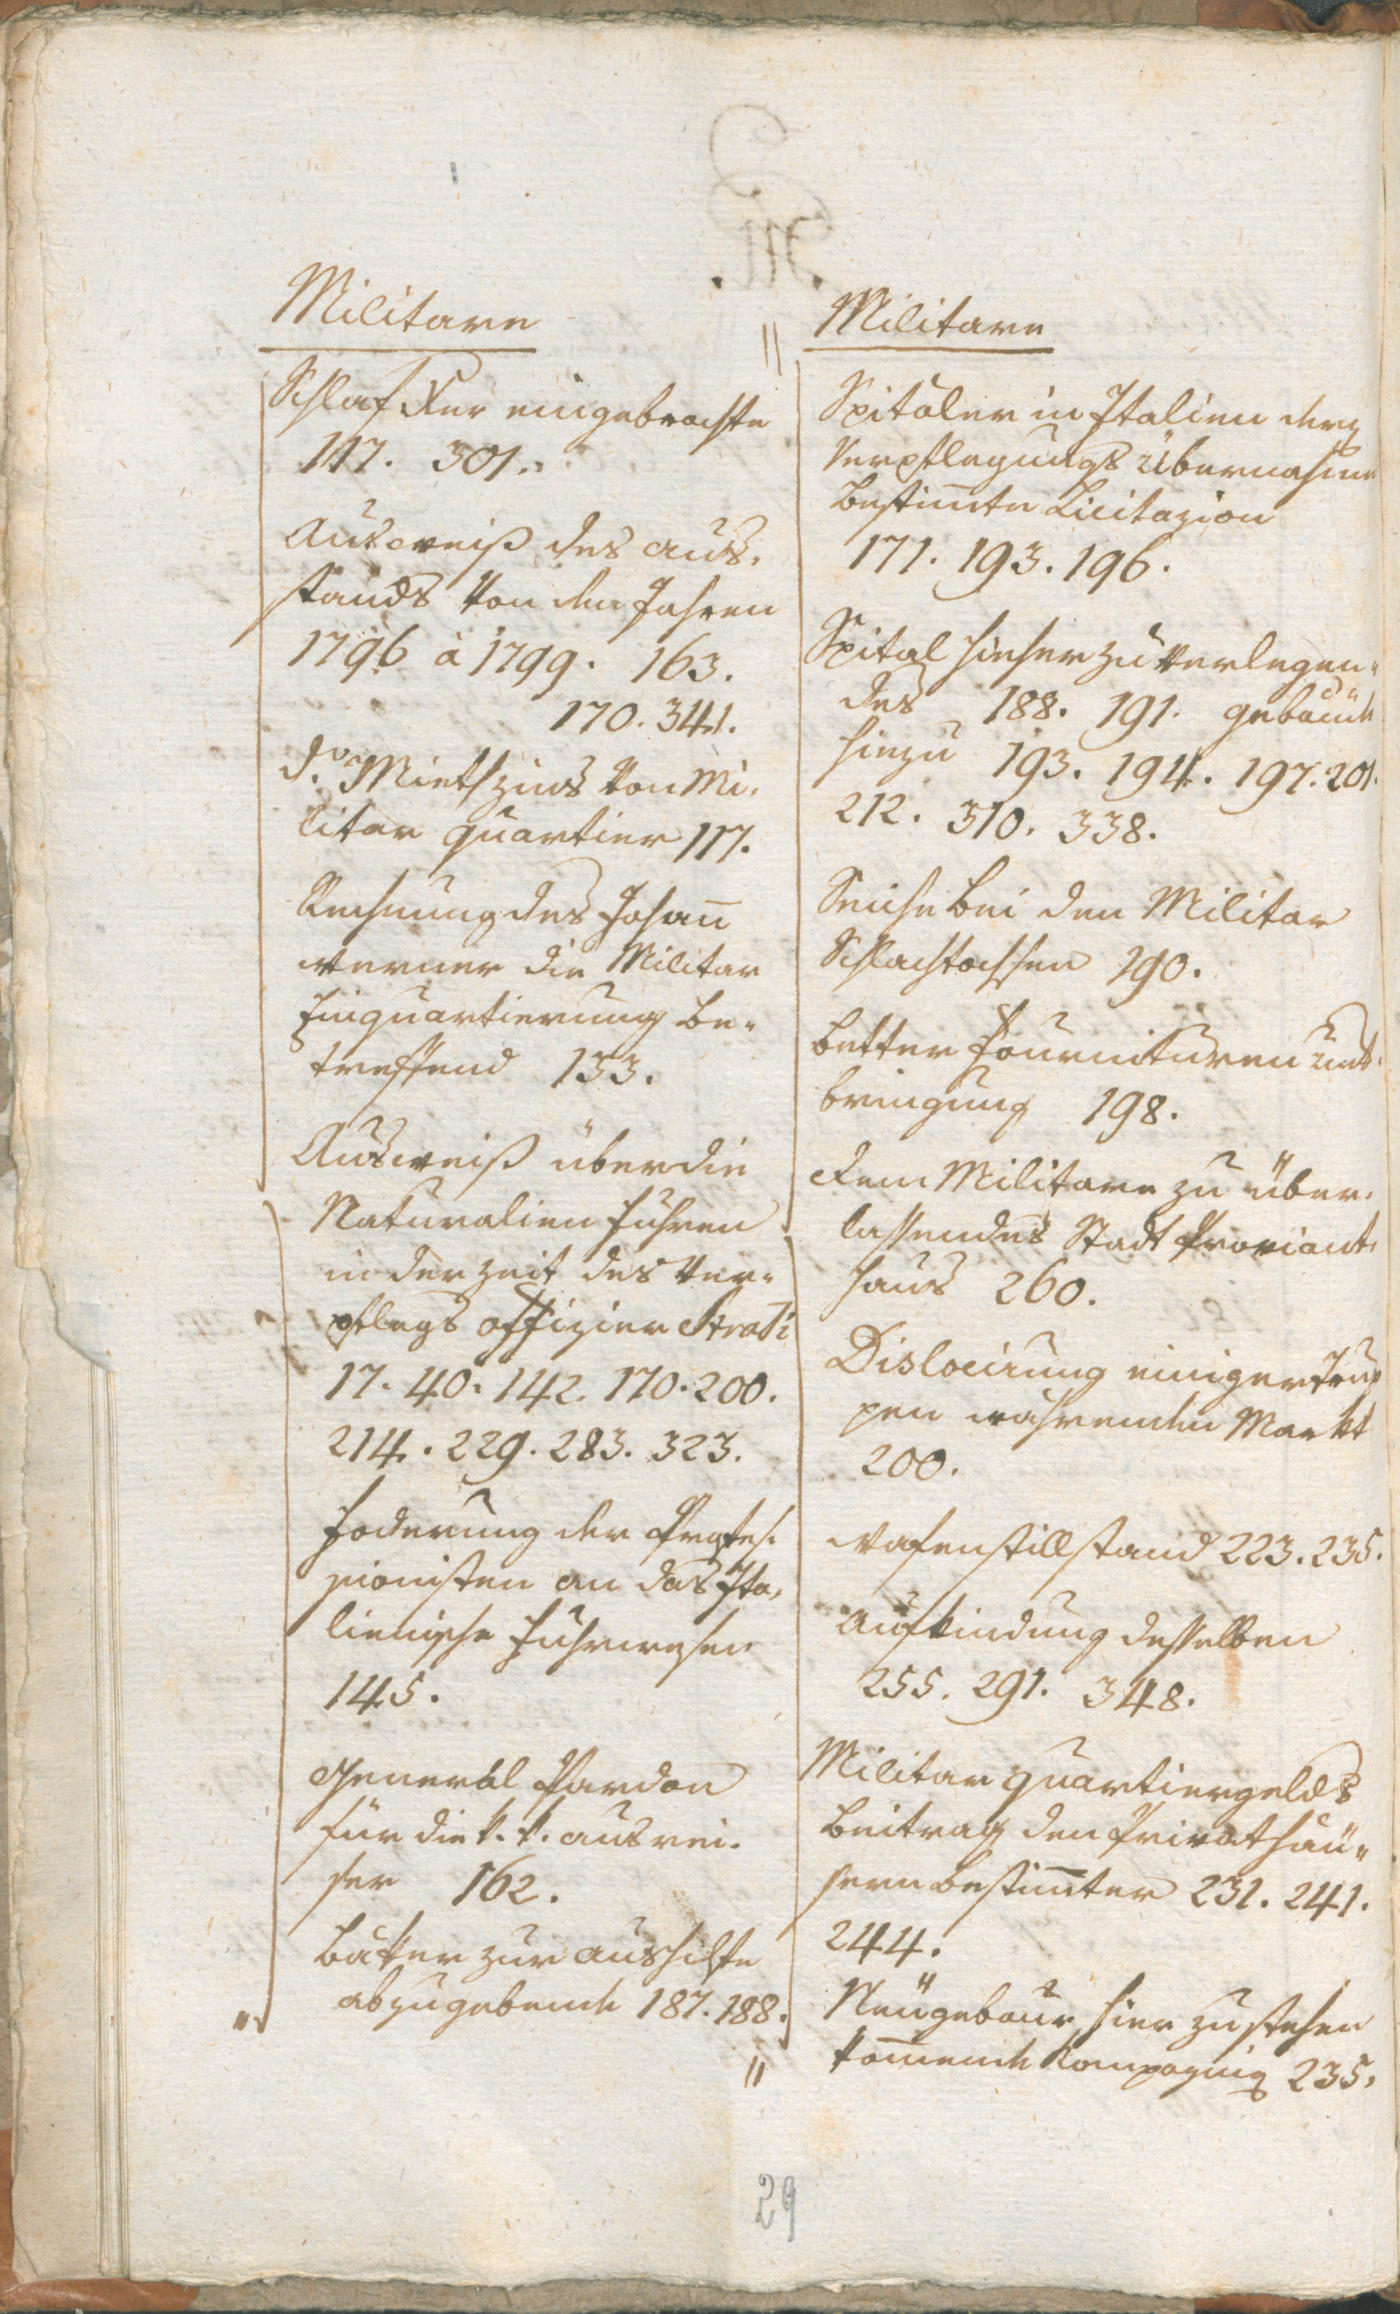 Militare
Schlaf Xer eingebrachte
117. 301.
Ausweiß des Aus-
stands von den Jahren
1796 à 1799. 163.
170. 341.
do. Miethzins von Mi-
litar Quartier 117.
Rechnung des Johann
Werner die Militar
Einquartierung be-
treffend 133.
Ausweiß über die
Naturalien Fuhren
in der Zeit des Ver-
pflegs Offizier Strati
17. 40. 142. 170. 200.
214. 229. 283. 323.
Foderung der Profes-
sionisten an das Ita-
lienische Fuhrwesen
145.
General Pardon
für die k. k. Ausrei-
ser 162.
Bäker zur Aushilfe
abzugebende 187. 188.
Militare
Spitäler in Italien
Verpflegungs Übernahme
bestimte Licitazion
171. 193. 196.
Spital hieher zu verlegen-
des 188. 191. Gebäude
hiezu 193. 194. 197. 201.
212. 310. 338.
Seuche bei den Militar
Schlachtochsen 190.
Better Fournituren Unt-
bringung 198.
dem Militare zu über-
lassendes Stadt Proviant
haus 260.
Dislocirung einiger Trup
pen währenden Markt
200.
Wafenstillstand 223. 235.
Aufkindung desselben
255. 291. 348.
Militar Quartiergelds
Beitrag den Privathäu-
sern bestimter 231. 241.
244.
Neugebaur hier zu stehen
komende Kompagnie 235.
29